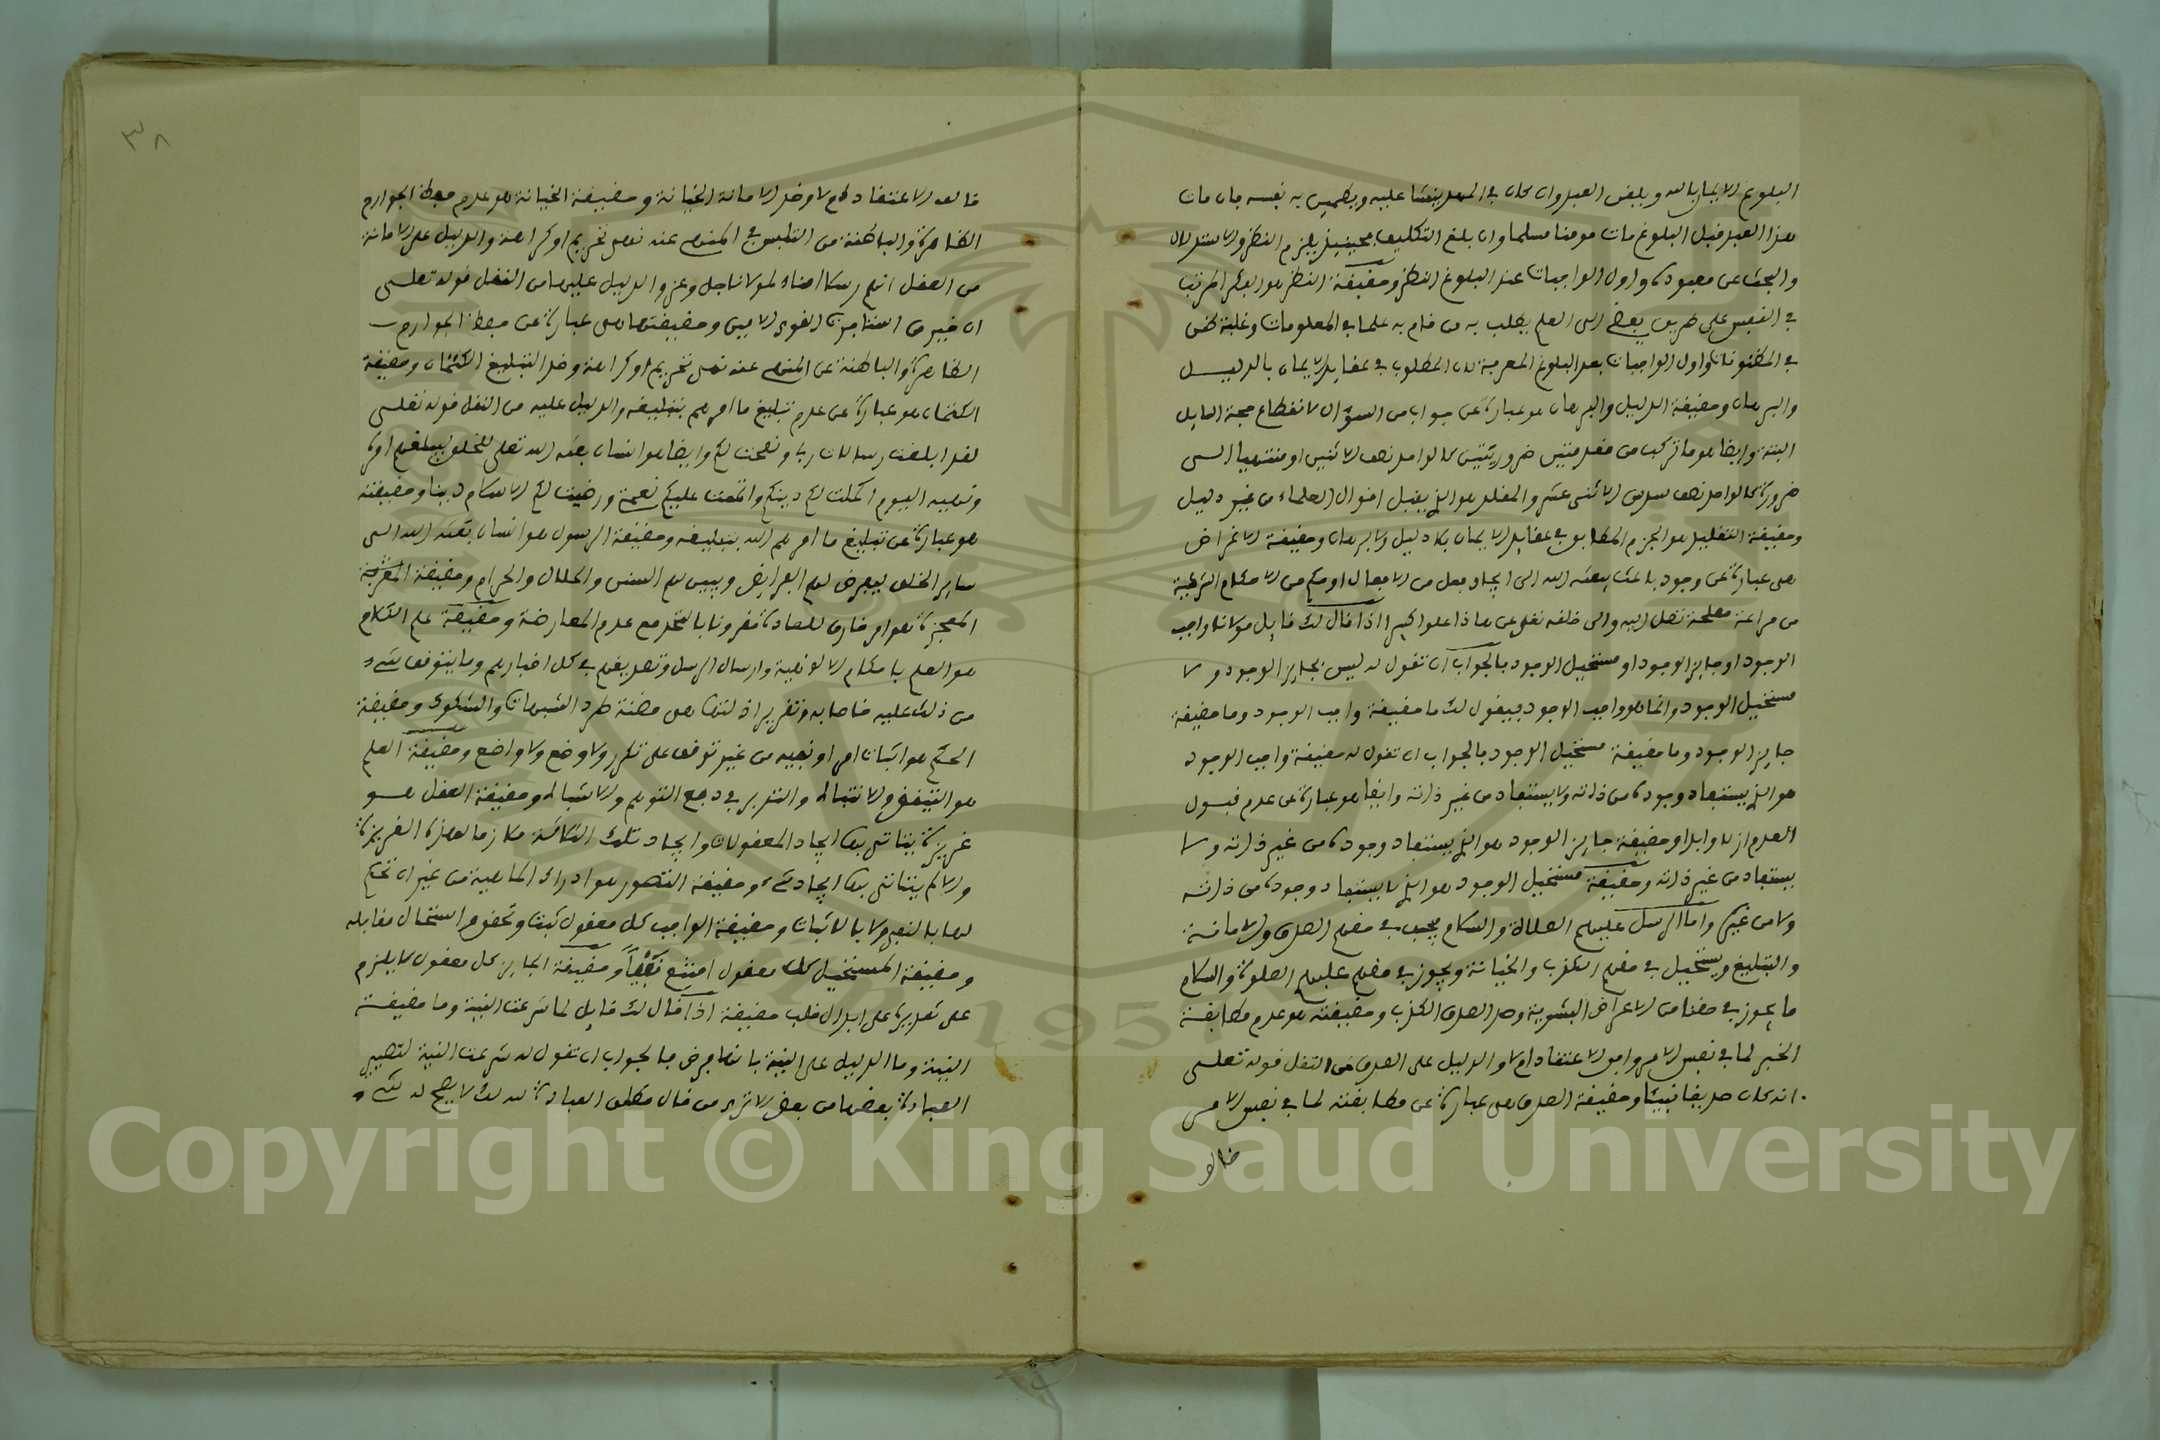 البلوغ الايمان بالله ويلقن العبد وان كان في المهد ينشا عليه ويطمئن به نفسه فان مات
هذا العبد قبل البلوغ مات مومنا مسلما وان بلغ التكليف فحينيذ يلزم النظر والاستدلال
والبحث عن معبوده واول الواجبات عند البلوغ النظر وحقيقة النظر هو الفكر المرتب
في النفس على طريق يفضي الى العلم يطلب به من قام به علما في المعلومات وغلبة ظن
في المظنونات واول الواجبات بعد البلوغ المعرفة لان المطلوب في عقايد الايمان بالدليل
والبرهان وحقيقة الدليل والبرهان هو عبارة عن جواب من السؤال لانقطاع حجة السايل
البتة وايضا هو ما تركب من مقدمتين ضروريتين كالواحد نصف الاثنين او منتهيا الى
ضرورة كالواحد نصف سدس الاثنى عشر والمقلد هو الذي يقبل اقوال العلماء من غير دليل
وحقيقة التقليد هو الجزم المطابق في عقايد الايمان بلا دليل ولا برهان وحقيقة الاغراض
هى عبارة عن وجود باعث يبعثه الله الى ايجاد فعل من الافعال او حكم من الاحكام الشرعية
من مراعة مصلحة تصل اليه والى خلقه تعلى عن هاذا علوا كبيرا اذا قال لك قايل مولانا واجب
الوجود او جايز الوجود او مستحيل الوجود فالجواب ان تقول له ليس بجايز الوجود ولا
مستحيل الوجود وانما هو واجب الوجود فيقول لك ما حقيقة واجب الوجود وما حقيقة
جايز الوجود وما حقيقة مستحيل الوجود فالجواب ان تقول له حقيقة واجب الوجود
هو الذي يستفاد وجوده من ذاته ولا يستفاد من غير ذاته وايضا هو عبارة عن عدم قبول
العدم ازلا وابدا وحقيقة جايز الوجود هو الذي يستفاد وجوده من غير ذاته ولا
يستفاد من غير ذاته وحقيقة مستحيل الوجود هو الذي لا يستفاد وجوده من ذاته
ولا من غيره واما الرسل عليهم الصلاة والسلام يجب في حقهم الصدق والامانة
والتبليغ ويستحيل في حقهم الكذب والخيانة ويجوز في حقهم عليهم الصلوة والسلام
ما يجوز في حقنا من الاعراض البشرية وضد الصدق الكذب وحقيقته هو عدم مطابقة
الخبر لما في نفس الامر وافق الاعتقاد ام لا والدليل على الصدق من النقل قوله تعلى
انه كان صديقا نبيئا وحقيقة الصدق هى عبارة عن مطابقته لما في نفس الامر
خالف
٣٨
خالف الاعتقاد ام لا وضد الامانة الخيانة وحقيقة الخيانة هو عدم حفظ الجوارح
الظاهرة والباطنة من التلبس في المنهي عنه نهي تحريم او كراهة والدليل على الامانة
من العقل انهم رسلا امناء لمولانا جل وعز والدليل عليها من النقل قوله تعلى
ان خير من استاجرت القوي الامين وحقيقتها هى عبارة عن حفظ الجوارح
الظاهرة والباطنة عن المنهي عنه نهي تحريم او كراهة وضد التبليغ الكتمان وحقيقة
الكتمان هو عبارة عن عدم تبليغ ما امرهم بتبليغه والدليل عليه من النقل قوله تعلى
لقد ابلغت رسالات ربي ونصحت لكم وايضا هو انسان بعثه الله تعلى للخلق ليبلغهم اوامره
ونهيه اليوم اكملت لكم دينكم واتممت عليكم نعمة ورضيت لكم الاسلام دينا وحقيقته
هو عبارة عن تبليغ ما امرهم الله بتبليغه وحقيقة الرسول هو انسان بعثه الله الى
ساير الخلق ليعرض لهم الفرايض ويبين لهم السنن والحلال والحرام وحقيقة المعرفة
المعجزة هو امر خارق للعادة مقرونا بالتحد مع عدم المعارضة وحقيقة علم الكلام
هو العلم باحكام الالوهية وارسال الرسل وتصديقهم في كل اخبارهم وما يتوقف شيء
من ذلك عليه خاصا به وتقرير ادلتها هى مضنة طرد الشبهات والشكوك وحقيقة
الحكم هو اثبات امر او نفيه من غير توقف على تكرر ولا وضع ولا واضع وحقيقة العلم
هو التيقظ والانتباه والتدبر في دفع التوهم والاشباه وحقيقة العقل هو
غريزة يتاتى بها ايجاد المعقولات وايجاد تلك الثلاثة ملازما لهذه الغريزة
ولا لم يتاتى بها ايجاد شيء وحقيقة التصور هو ادراك الماهية من غير ان تحكم
لها بالنفي ولا بالاثبات وحقيقة الواجب كل معقول ثبت وتحقق واستحال مقابله
وحقيقة المستحيل كل معقول امتنع نفيا وحقيقة الجايز كل معقول لا يلزم
على تقديره على ابدال قلب حقيقة اذا قال لك قايل لما شرعت النية وما حقيقة
النية وما الدليل على النية بانها فرض فالجواب ان تقول له شرعت النية لتمييز
العبادة بعضها من بعض الا ترى من قال مطلق العبادة لله لا يصح له شيء